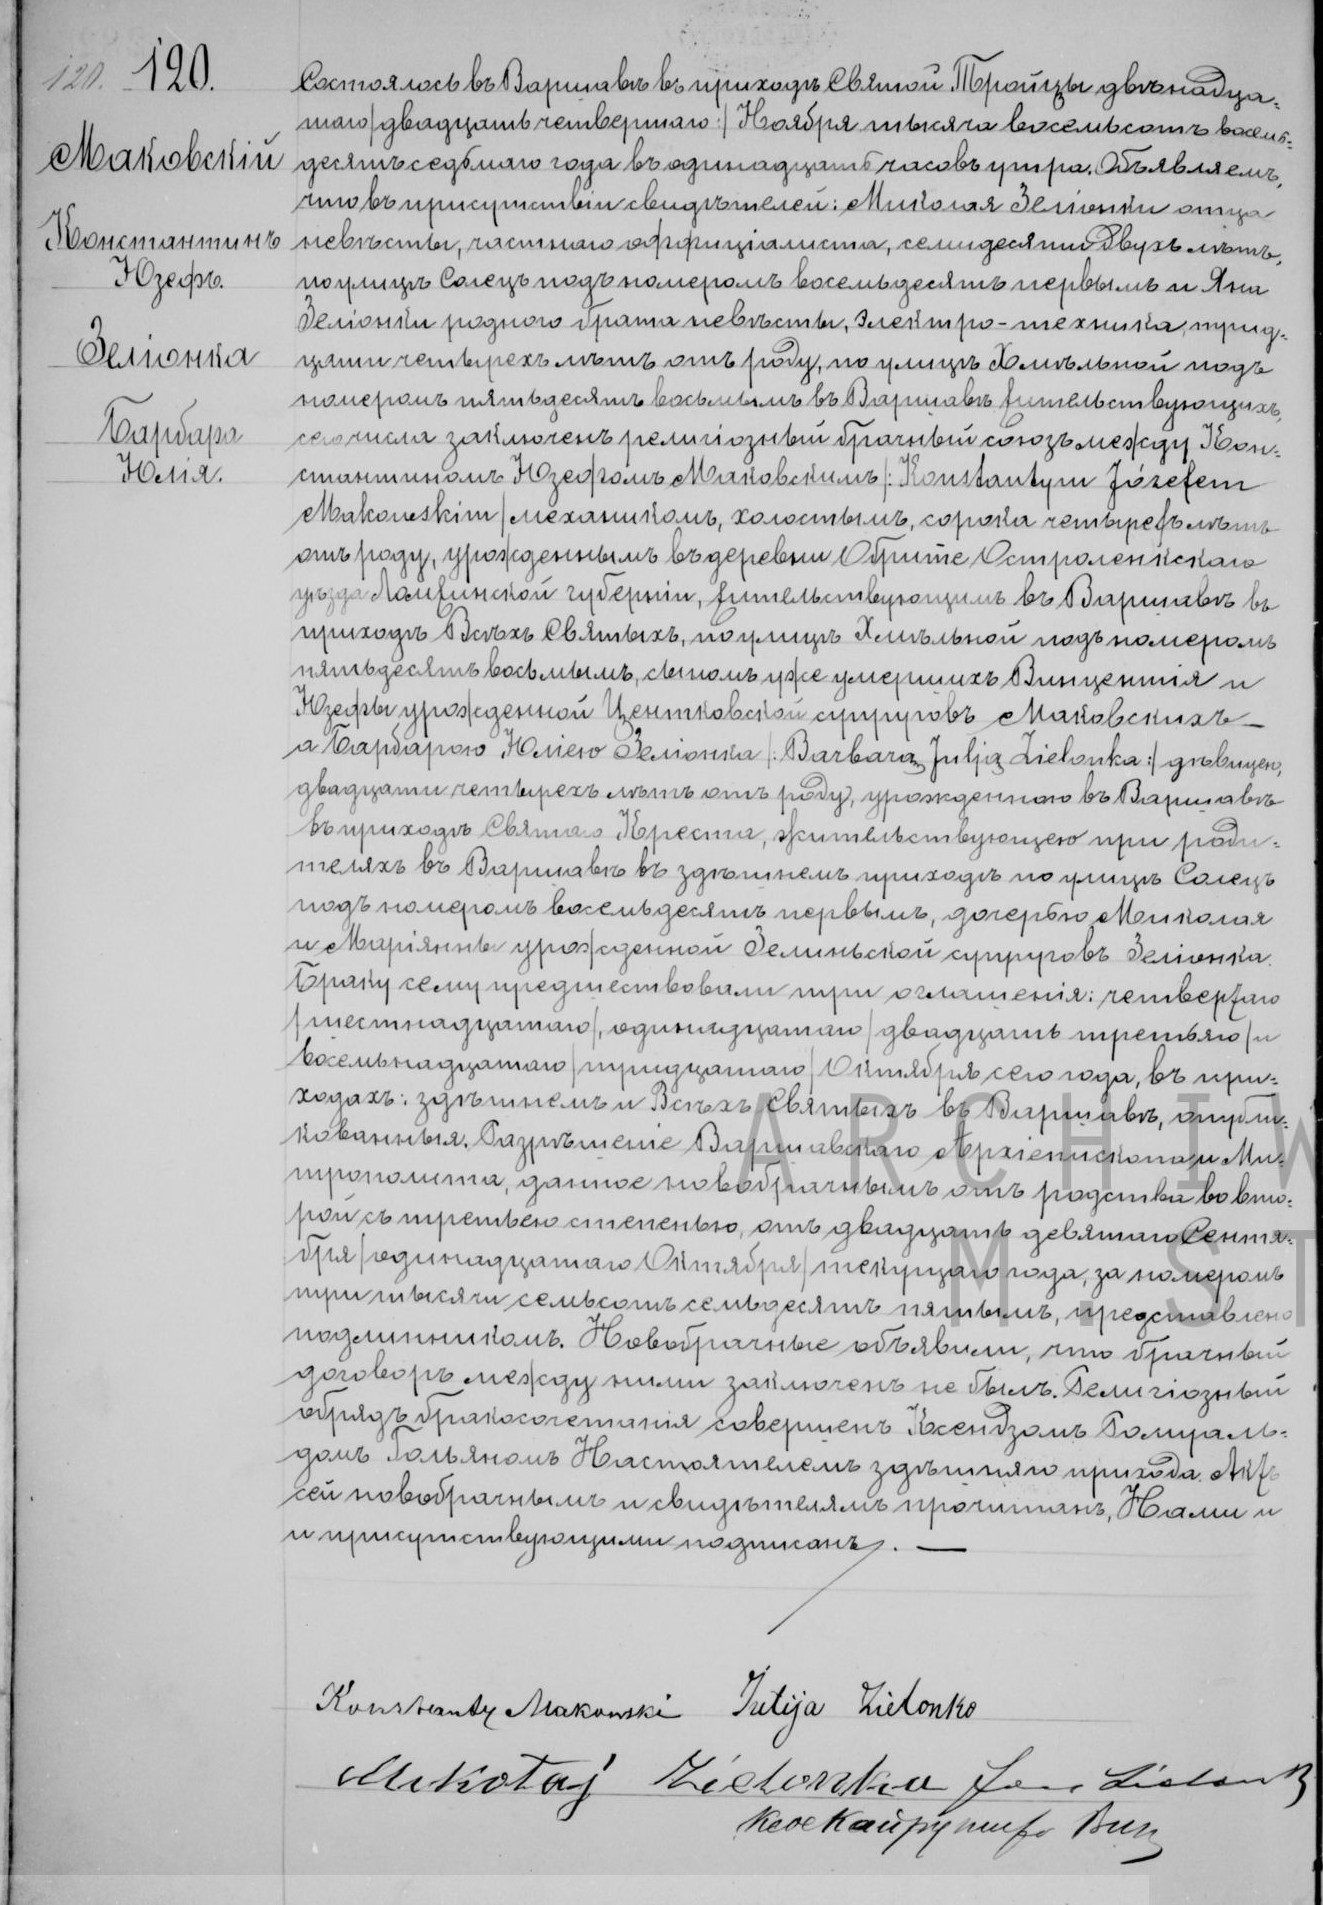 120. 120.
Маковскій
Константинъ
Юзефъ.
Зеліонка
Барбара
Юлія.
Состоялось въ Варшавѣ въ приходѣ Святой Тройцы двѣнадца=
таго /двадцать четвертаго:/ Ноября тысяча восемьсотъ восемь=
десятъ седьмаго года въ одинадцать часовъ утра. Объявляемъ,
что въ присутствіи свидѣтелей: Миколая Зеліонки отца
невѣсты, частнаго оффиціалиста, семидесяти двухъ лѣтъ,
по улицѣ Солецъ подъ номеромъ восемьдесятъ первымъ и Яна
Зеліонки роднаго брата невѣсты, электро-техника, трид=
цати четырехъ лѣтъ отъ роду, по улицѣ Хмѣльной подъ
номеромъ пятьдесятъ восьмымъ въ Варшавѣ жительствующихъ,
сего числа заключенъ религіозный брачный союзъ между Кон=
стантиномъ Юзефомъ Маковскимъ /: Konstantym Józefem
Makowskim / механикомъ, холостымъ, сорока четырехъ лѣтъ
отъ роду, урожденнымъ въ деревни Обрите Остроленкскаго
уѣзда Ломжинской губерніи, жительствующимъ въ Варшавѣ въ
приходѣ Всѣхъ Святыхъ, по улицѣ Хмѣльной подъ номеромъ
пятьдесятъ восьмымъ, сыномъ уже умершихъ Винцентія и
Юзефы урожденной Центковской супруговъ Маковскихъ —
а Барбарою Юліею Зеліонка /: Barbarą Julją Zielonka :/ дѣвицею,
двадцати четырехъ лѣтъ отъ роду, урожденною въ Варшавѣ
въ приходѣ Святаго Креста, жительствующею при роди=
теляхъ въ Варшавѣ въ здѣшнемъ приходѣ по улицѣ Солецъ
подъ номеромъ восемьдесятъ первымъ, дочерью Миколая
и Маріянны урожденной Зелиньской супруговъ Зеліонка.
Браку сему предшествовали три оглашенія: четвертаго
/шестнадцатаго/, одинадцатаго /двадцать третьяго/ и
восемьнадцатаго /тридцатаго/ Октября сего года, въ при=
ходахъ: здѣшнемъ и Всѣхъ Святыхъ въ Варшавѣ, опубли=
кованныя. Разрѣшеніе Варшавскаго Архіепископа и Ми=
трополита, данное новобрачнымъ отъ родства во вто=
рой съ третьею степенью, отъ двадцать девятаго Сентя=
бря /одинадцатаго Октября/ текущаго года, за номеромъ
три тысячи семьсотъ семьдесятъ пятымъ, представлено
подлинникомъ. Новобрачные объявили, что брачный
договоръ между ними заключенъ не былъ. Религіозный
обрядъ бракосочетанія совершенъ Ксендзомъ Ромуаль=
домъ Гольяномъ Настоятелемъ здѣшняго прихода. Актъ
сей новобрачнымъ и свидѣтелямъ прочитанъ, Нами и
и присутствующими подписанъ. —
Konstanty Makowski Julija Zielonko
Mikołaj Zielonka Jan Zielonk
ARCHIW
M. ST